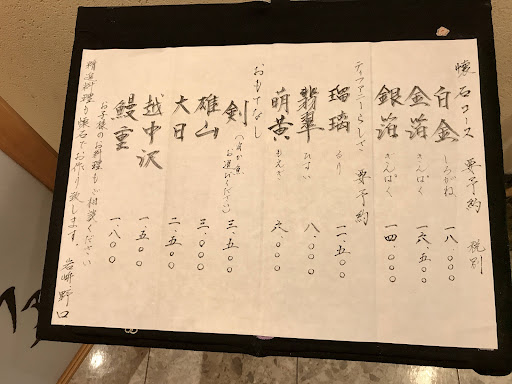 懐石コース 要予約 税別
白金 しろがね 一八.〇〇〇
金箔 きんぱく 一六.五〇〇
銀箔 ぎんぱく 一四.〇〇〇
ティファニーらしざ 要予約
瑠璃 るり 一一.五〇〇
翡翠 ひすい 八.〇〇〇
萌黄 もえぎ 六.〇〇〇
おもてなし
剣 三.五〇〇
お選びください)
雄山 三.〇〇〇
大日 二.五〇〇
越中沢 一.五〇〇
鰻重 一.八〇〇
お子様のお料理もご相談ください
精進料理と懐石でお作り致します。 岩崎.野口